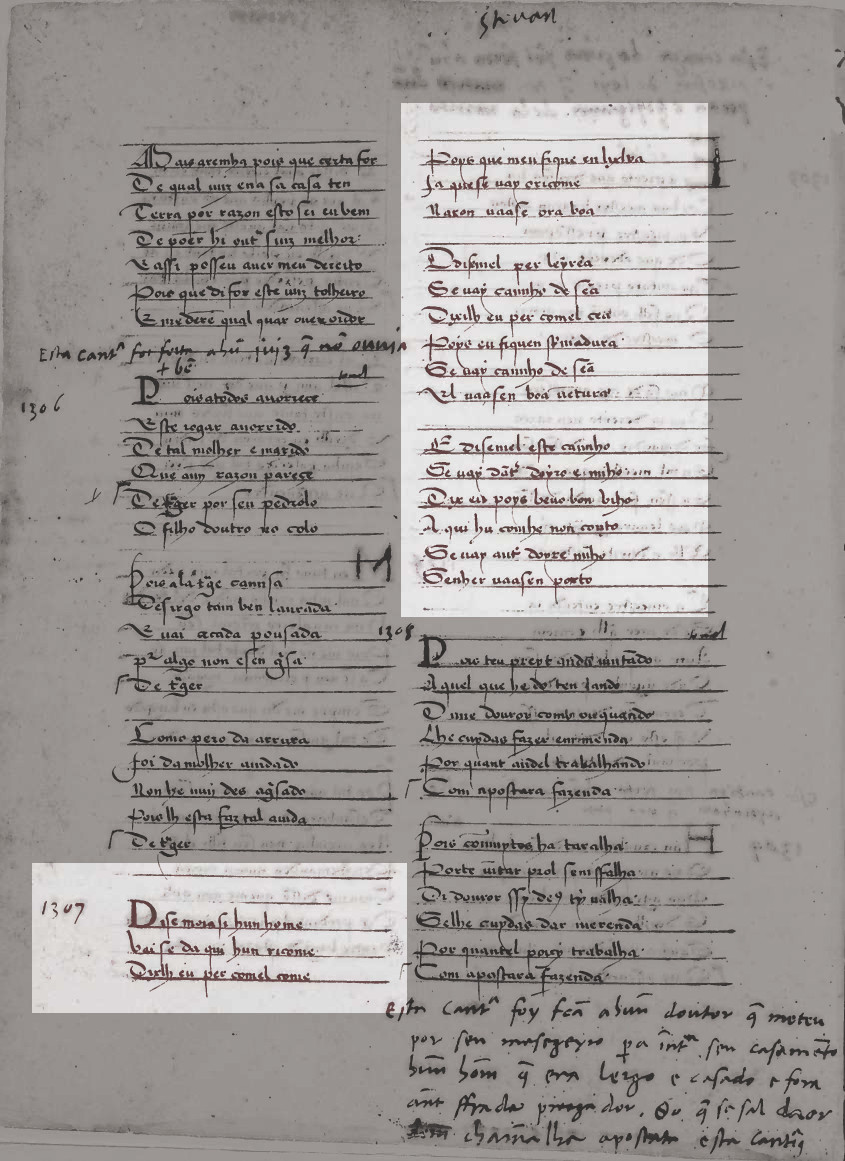 Stevan
Mays aremha poys que certa for
De qual uiz en a sa casa ten
Terra por razon esto sei eu bem
De poer hi outro juiz melhor
E assi posseu auer meu dereito
Poys que di for este uiiz tolheito
E me deren qual quer outr ouuidor
Esta cantª foi feita a hũ juiz q̃ nõ ouuia
+ bẽ
tornel
1306
Poys a todos auorrece
Este iogar auorrido
De tal molher e marido
Que a mĩ razon pareçe
De trager por seu pediolo
O filho doutro no colo
Poys ala trage camisa
De sirgo tam ben laurada
E uai a cada pousada
pr̃ algo non e sen gisa
De trager
Como pero da arruda
Foi da molher aiudado
Non he muy des agisado
Poys lh esta faz tal aiuda
De trager
1307
Disemora si hun home
Vai se da qui hun ricome
Dixlh eu per comel come
Poys que meu fique en lixboa
Ja que se uay o ricome
Naron uaa se ora boa
E disemel per leyrea
Se uay caminho de seã
Dixlh eu per comel cea
Poys eu fiquen
Se uay caminho de seã
El uaa sen boa uẽtura
E disemel este caminho
Se uay antr doyro e minho
Dix eu poys beuo bon vinho
A qui hu comhe non conto
Se uay antr doyre minho
Senher uaa sen porto
1308
tornel
Poys teu preyt anda iuntãdo
Aquel que he do teu lando
Di me douror comb ou quando
Lhe cuydas fazer enmenda
Por quant andel trabalhando
Com apostara fazenda
Poys contrayptos ha taralha
Porte iũtar prol sen ffalha
Di douror ssy des ty valha
Se lhe cuydas dar merenda
Por quantel pory trabalha
Com apostara fazenda
Esta cantª foy fcã a hũu doutor q̃ meteu
por seu mesegeyro pa iũtª seu casamẽto
hũu hom̃ q̃ era lergo e casado e fora
ant ffrade preegador. So q̃ se sal
chamalha apostata esta cantigª